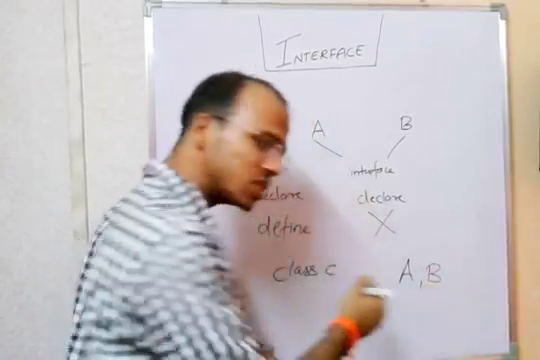 INTERFACE
A B
interface
declare
define X
class C A, B